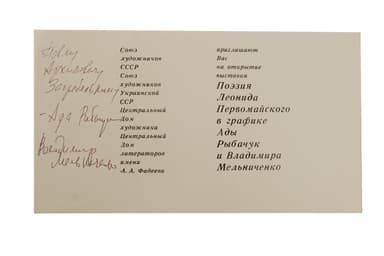 Павлу
Архиповичу
Загребельному
- Ада Рыбачук
Владимир
Мельниченко
Союз
художников
СССР
Союз
художников
Украинской
ССР
Центральный
Дом
художника
Центральный
Дом
литераторов
имени
А. А. Фадеева
приглашают
Вас
на открытие
выставки
Поэзия
Леонида
Первомайского
в графике
Ады
Рыбачук
и Владимира
Мельниченко